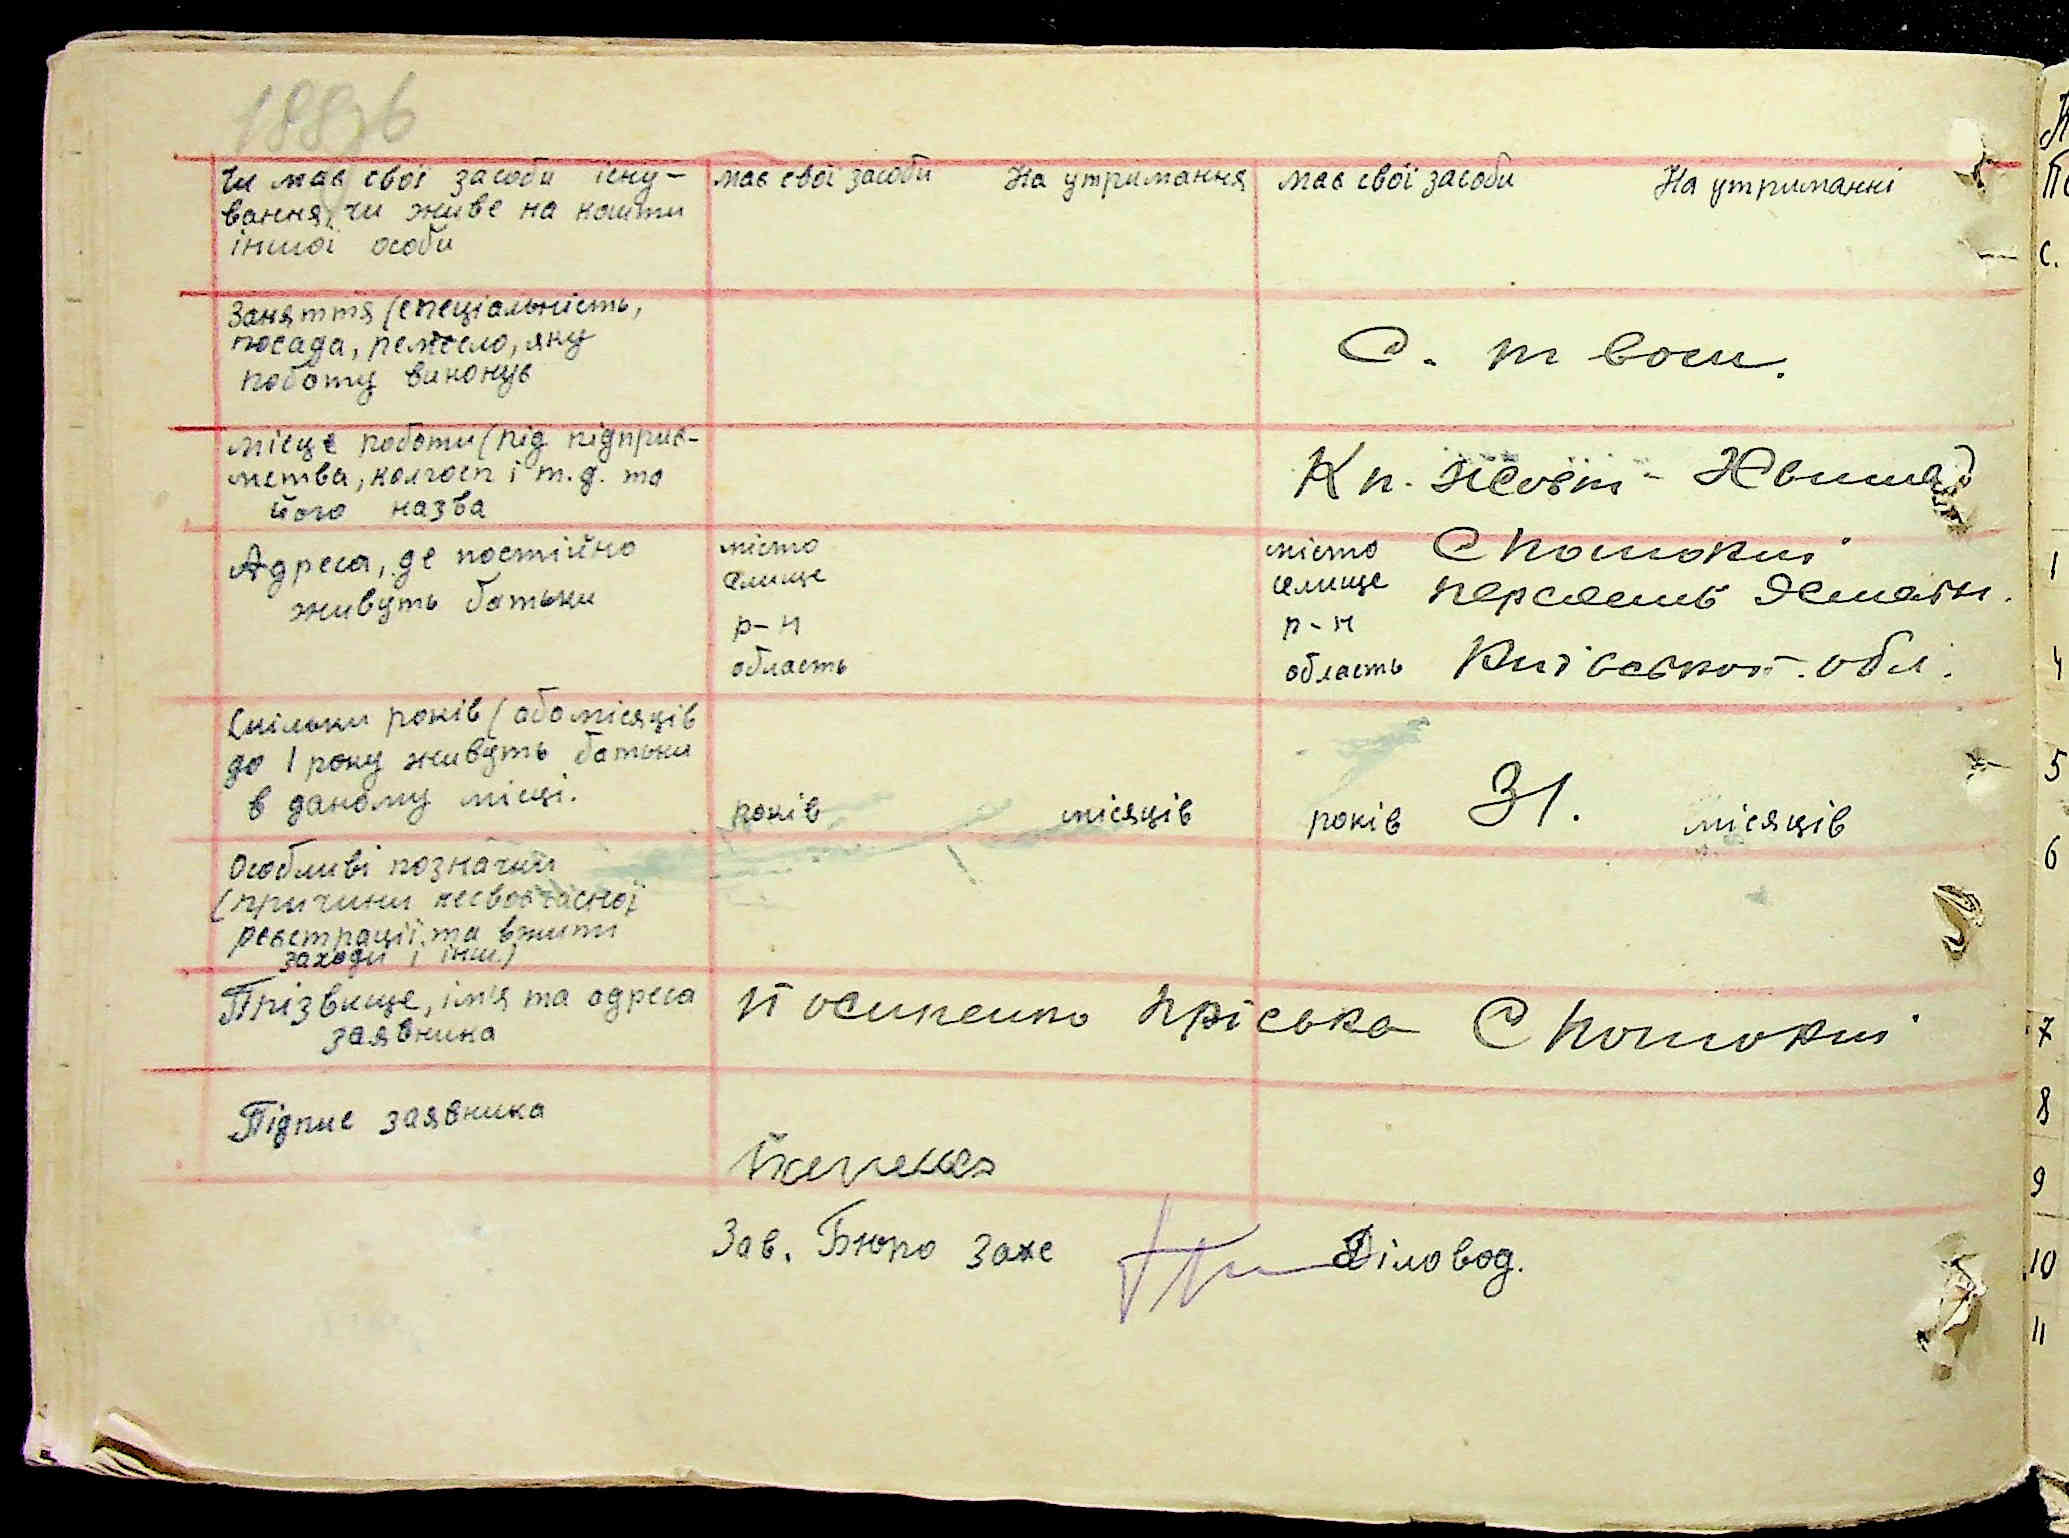 188зв
Чи має свої засоби існу- має свої засоби На утримання має свої засоби На утриманні
вання, чи живе на кошти
іншої особи
Заняття (спеціальність,
посада, ремесло, яку
роботу виконує
С. твош.
Місце роботи (під підприє-
мства, колгосп і т.д. та
його назва
Кп. Жовт-
Адреса, де постійно
живуть батьки
місто
селище
р-н
область
місто С Потокпи
селище
р-н
область Київської обл.
Скільки років (або місяців
до 1 року живуть батьки
в даному місці.
років місяців років 31. місяців
Особливі позначки
(причини несвоєчасної
реєстрації та вжиті
заходи і інш.)
Прізвище, ім'я та адреса
заявника
Йосипенко Пріська С Потокпи
Підпис заявника
Зав. Бюро Загс Діловод.